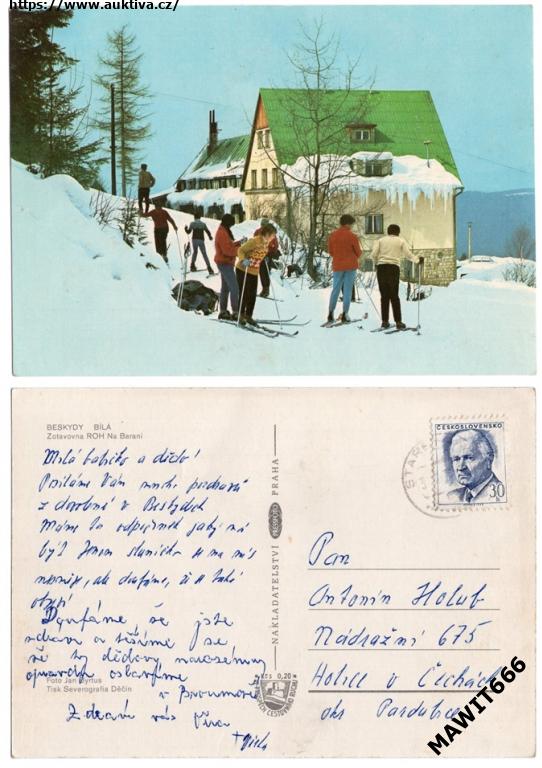 https://www.auktiva.cz/
BESKYDY BÍLÁ
Zotavovna ROH Na Baraní
Milá babičko a dědo!
Posíláme Vám mnoho pozdravů
z dovolené v Beskydách
Máme tu odpočinek jaký má
být Jenom sluníčko na nás
ale doufáme, že
Doufáme, že jste
zdraví a těšíme se
že ty dědovy narozeniny
opravdu oslavíme
v Broumově
Zdraví vás
Foto Jan Byrtus
Tisk Severografia Děčín
NAKLADATELSTVÍ PRESSFOTO PRAHA
Kčs 0,20
ČESKOSLOVENSKO
30
h
STARÉ
Pan
Antonín Holub
Nádražní 675
Holice v Čechách
okr Pardubice
MAWIT666